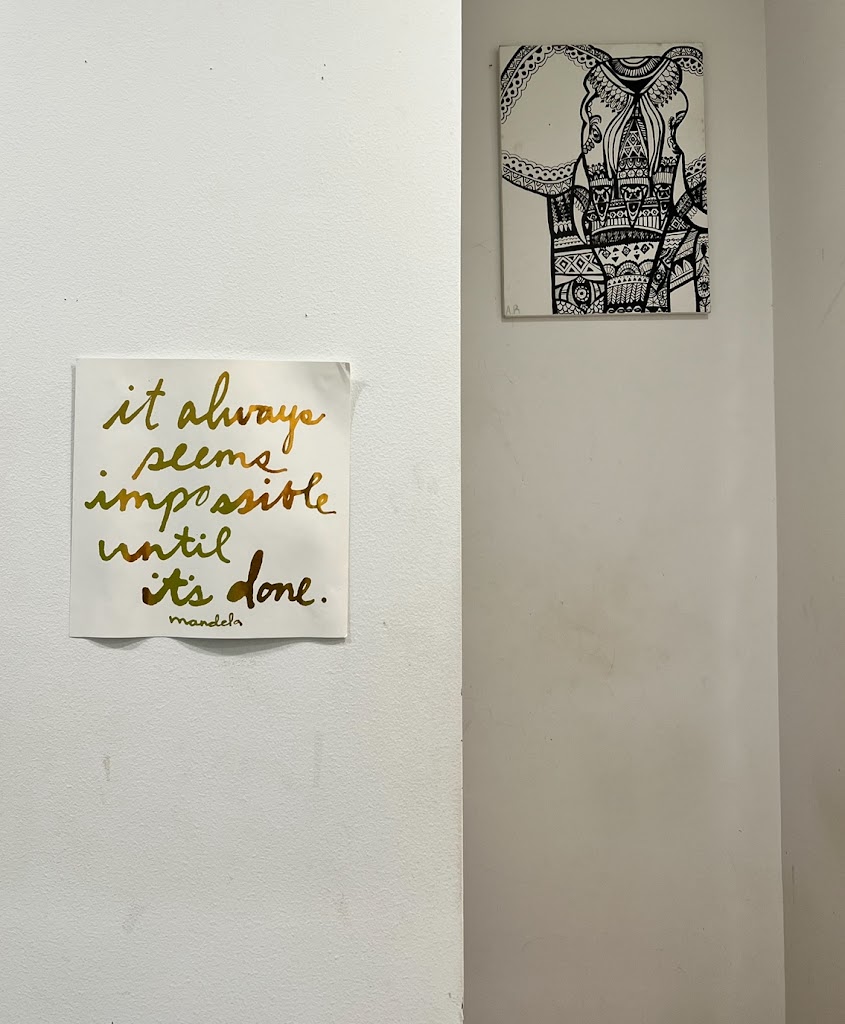 it always
seems
impossible
until
it's done.
mandela